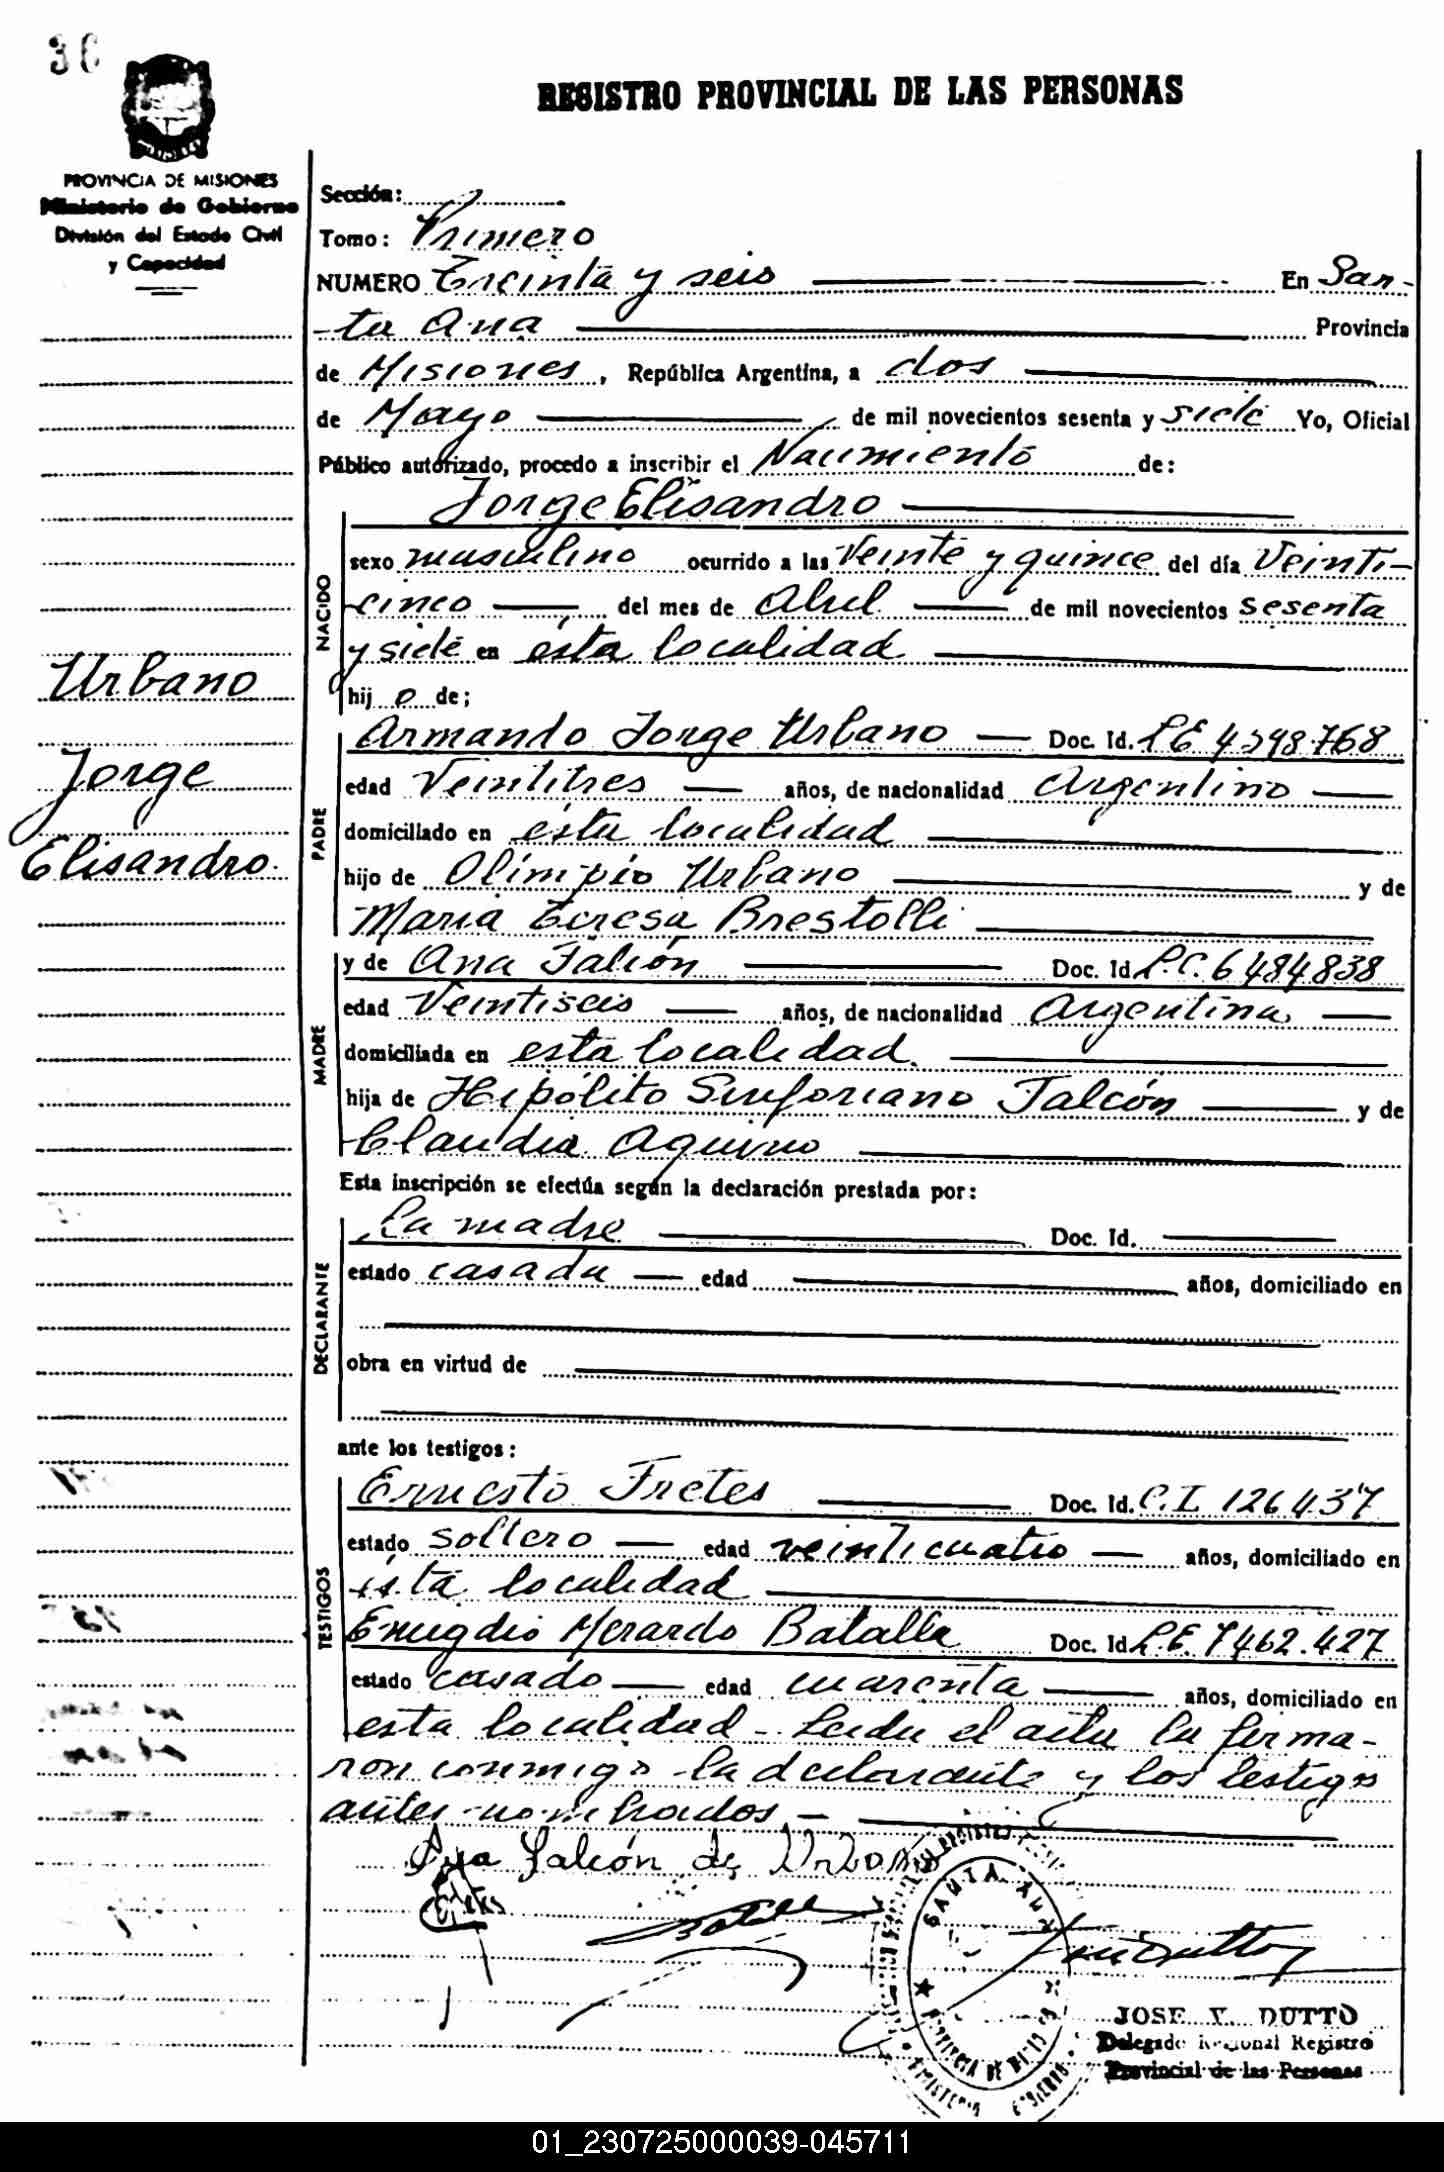 36
REGISTRO PROVINCIAL DE LAS PERSONAS
PROVINCIA DE MISIONES
Ministerio de Gobierno
División del Estado Civil
y Capacidad
Sección:
Tomo: Primero
NUMERO Treinta y seis En San-
-ta Ana Provincia
de Misiones, República Argentina, a dos
de Mayo de mil novecientos sesenta y siete Yo, Oficial
Público autorizado, procedo a inscribir el Nacimiento de:
Jorge Elisandro
NACIDO
sexo masculino ocurrido a las Veinte y quince del día Veinti-
-cinco del mes de Abril de mil novecientos sesenta
y siete en ésta localidad
hij o de;
Urbano
Jorge
Elisandro.
PADRE
Armando Jorge Urbano Doc. Id. L.E 4.298.768
edad Veintitres años, de nacionalidad Argentino
domiciliado en ésta localidad
hijo de Olimpio Urbano y de
Maria Teresa Brestolli
MADRE
y de Ana Falcón Doc. Id. L.C. 6484.838
edad Veintiseis años, de nacionalidad Argentina
domiciliada en esta localidad.
hija de Hipólito Sinforiano Falcón y de
Claudia Aquino
Esta inscripción se efectúa según la declaración prestada por:
DECLARANTE
La madre Doc. Id.
estado casada edad años, domiciliado en
obra en virtud de
ante los testigos:
TESTIGOS
Ernesto Fretes Doc. Id. C.I. 126437
estado soltero edad veinticuatro años, domiciliado en
ésta localidad
Emigdio Merardo Batalla Doc. Id. L.E. 7462.427
estado casado edad cuarenta años, domiciliado en
esta localidad - Leida el acta la firma-
ron conmigo la declarante y los testigos
antes nombrados -
Ana Falcón de Urbano
SANTA ANA
PROVINCIA DE MISIONES
MINISTERIO GOBIERNO
JOSE V. DUTTO
Delegado Regional Registro
Provincial de las Personas
01_230725000039-045711